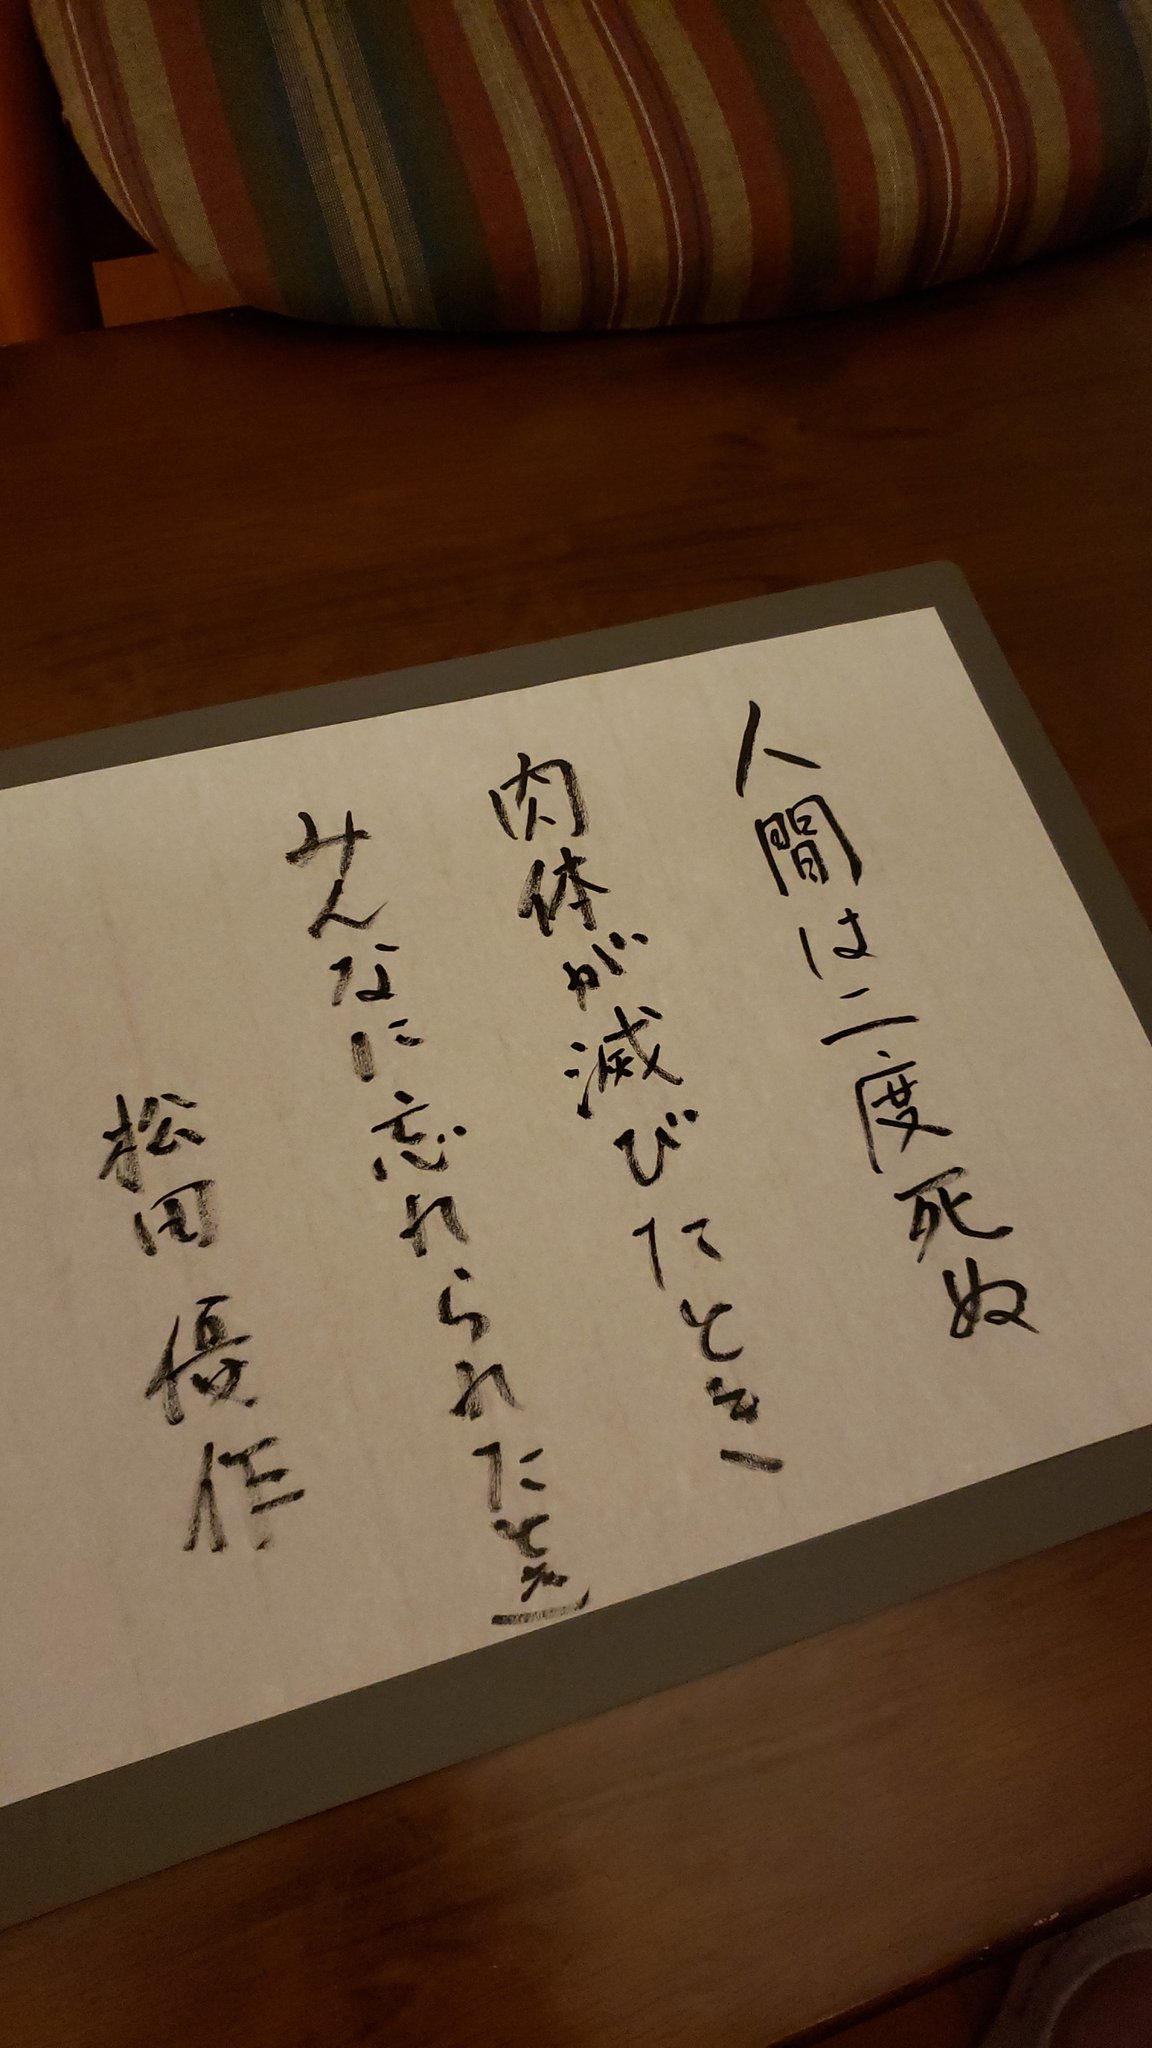 人間は二度死ぬ
肉体が滅びたとき
みんなに忘れられたとき」
松田優作